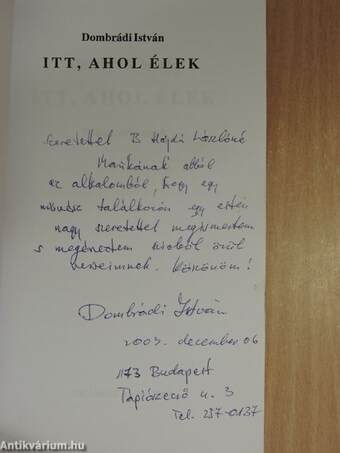 Dombrádi István
ITT, AHOL ÉLEK
Szeretettel B Hajdú Lászlóné
Marikának abból
az alkalomból, hogy egy
művész találkozón egy estén
nagy szeretettel megismertem
s megéreztem szívből örül
verseimnek. Köszönöm!
Dombrádi István
2003. december 06
1173 Budapest
Tápiószecső u. 3
Tel. 257-0137
Antikvárium.hu